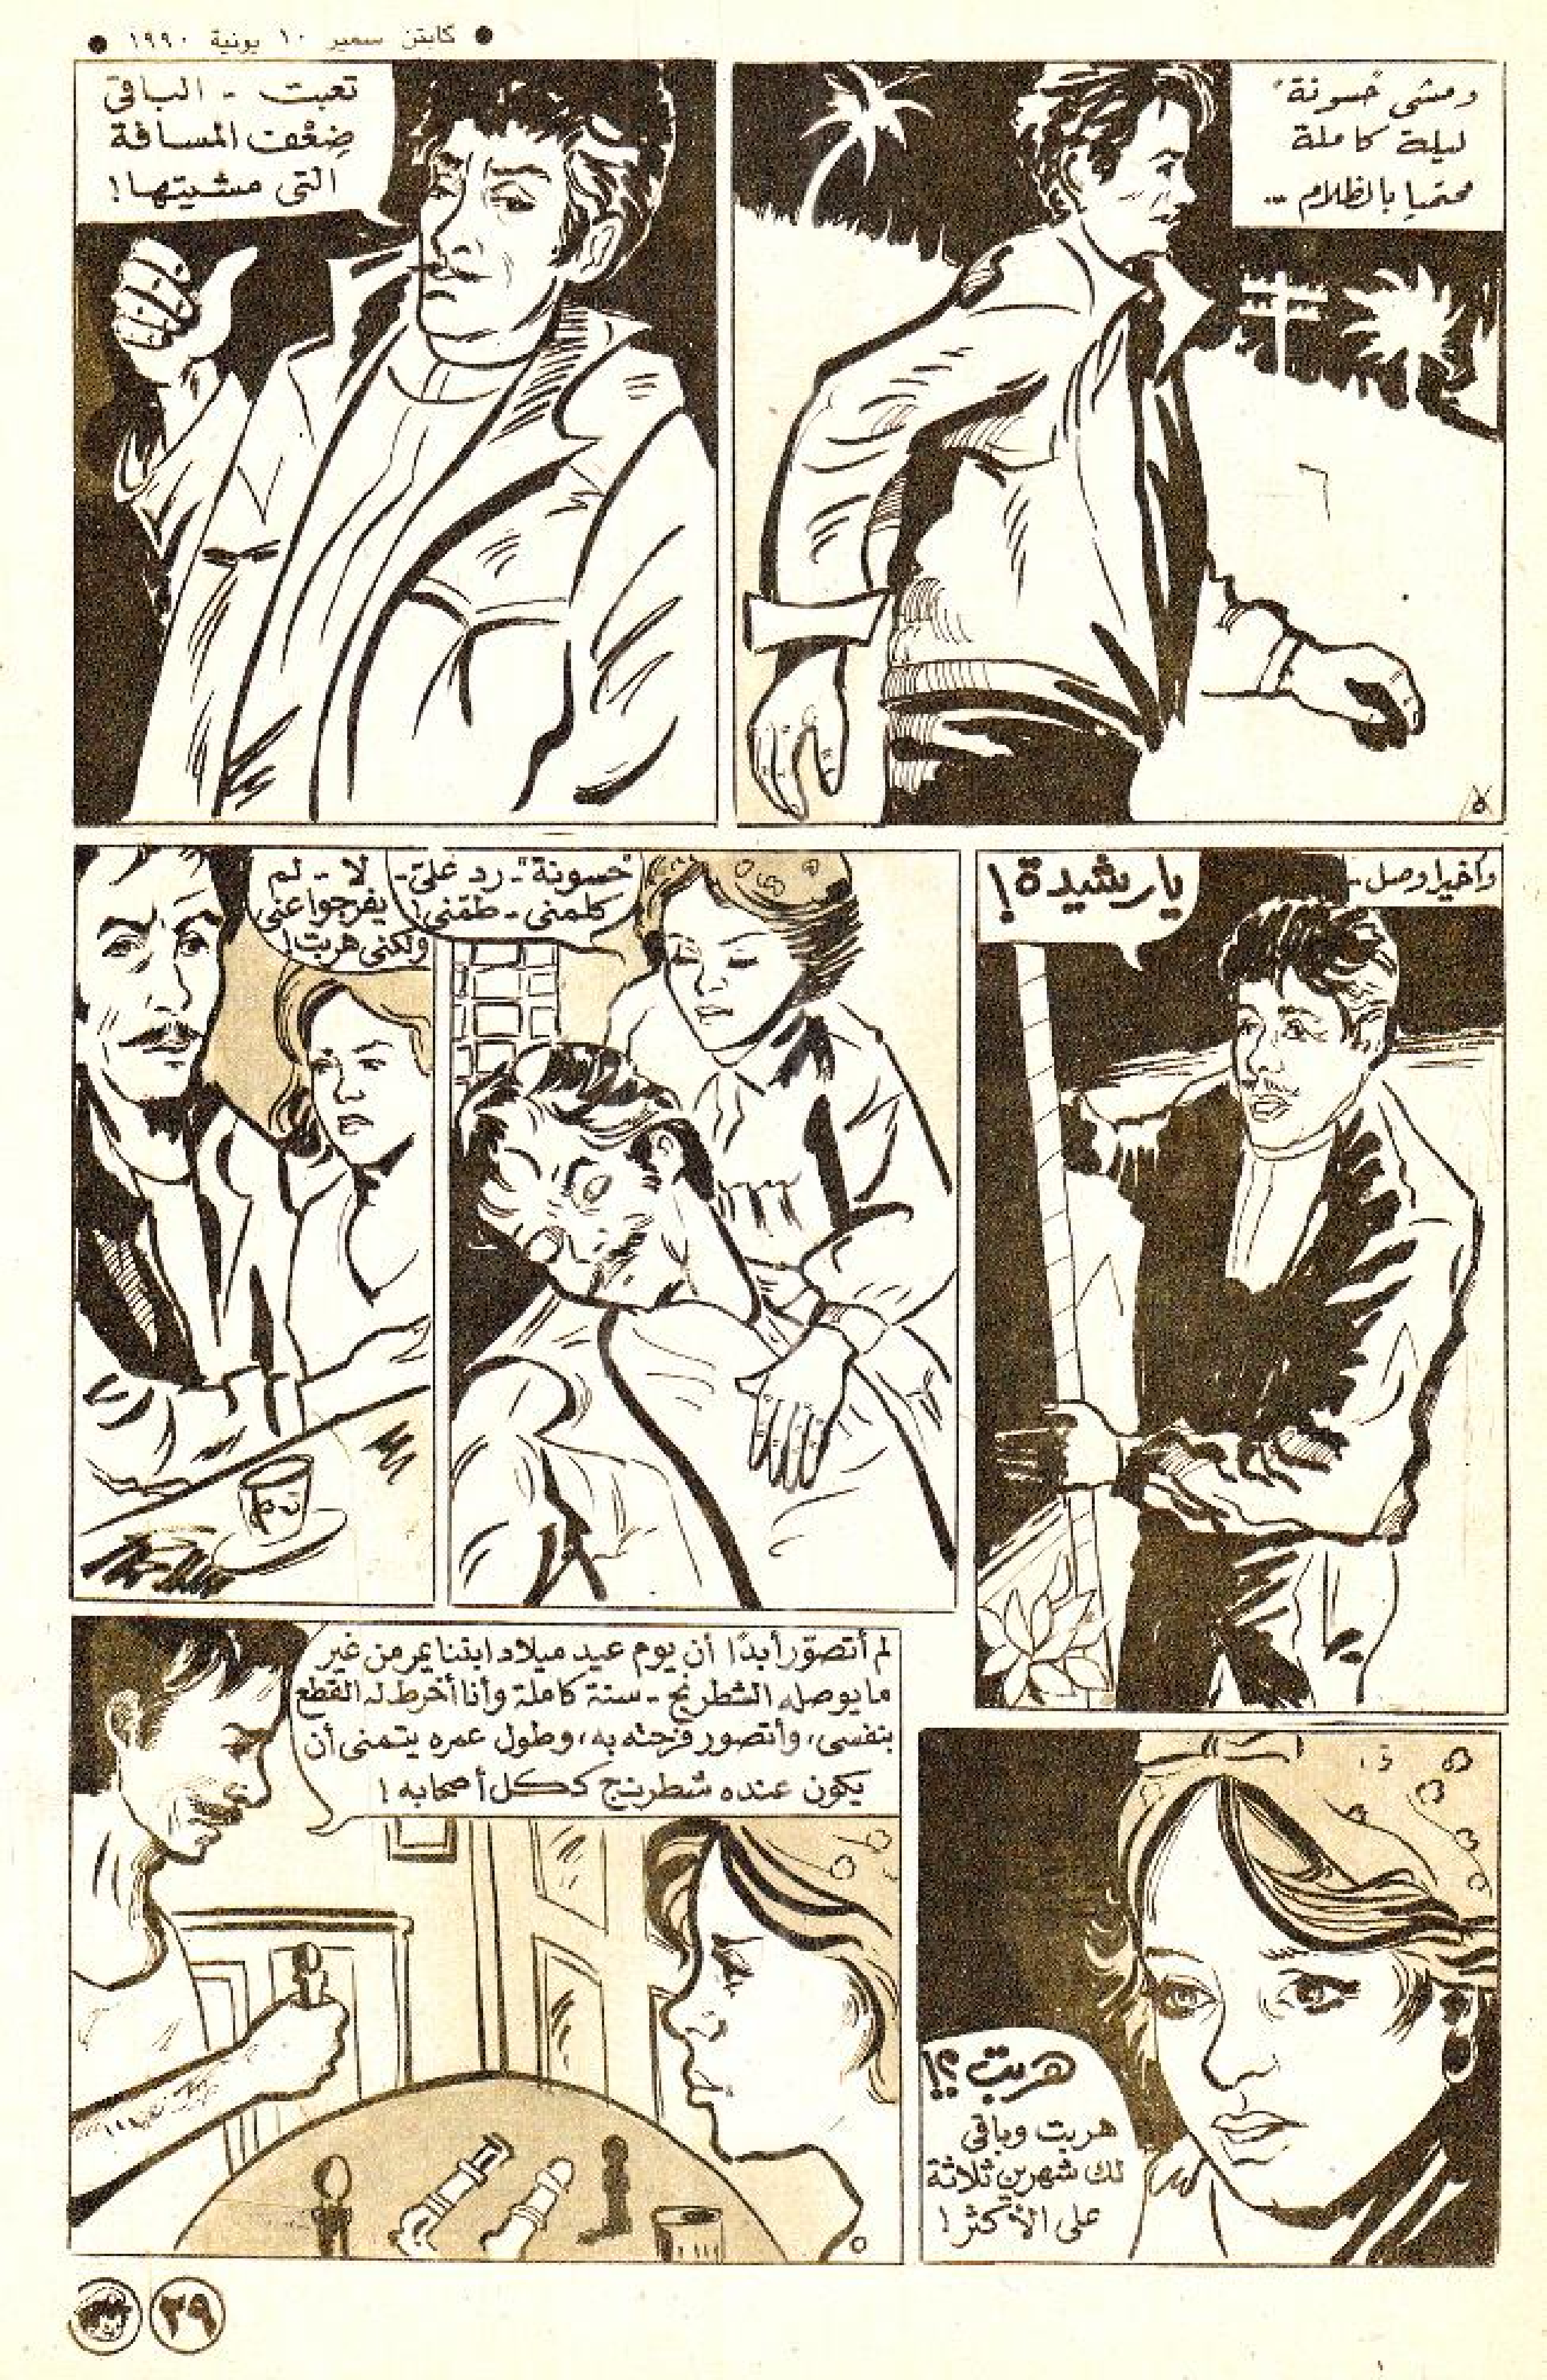 ● كابتن سمير ١٠ يونية ١٩٩٠ ●
ومشى "حسونة"
ليلة كاملة
محتميا بالظلام ...
تعبت - الباقى
ضِعْف المسافة
التى مشيتها!
وأخيرا وصل -
يا رشيدة!
"حسونة" - رد علىّ -
كلمنى - طمنى!
لا - لم
يفرجوا عنى
ولكنى هربت!
هربت؟!
هربت وباقى
لك شهرين ثلاثة
على الأكثر!
لم أتصوّر أبدًا أن يوم عيد ميلاد ابننا يمر من غير
ما يوصله الشطرنج - سنة كاملة وأنا أخرط له القطع
بنفسى، وأتصور فرحته به، وطول عمره يتمنى أن
يكون عنده شطرنج ككل أصحابه!
٢٩